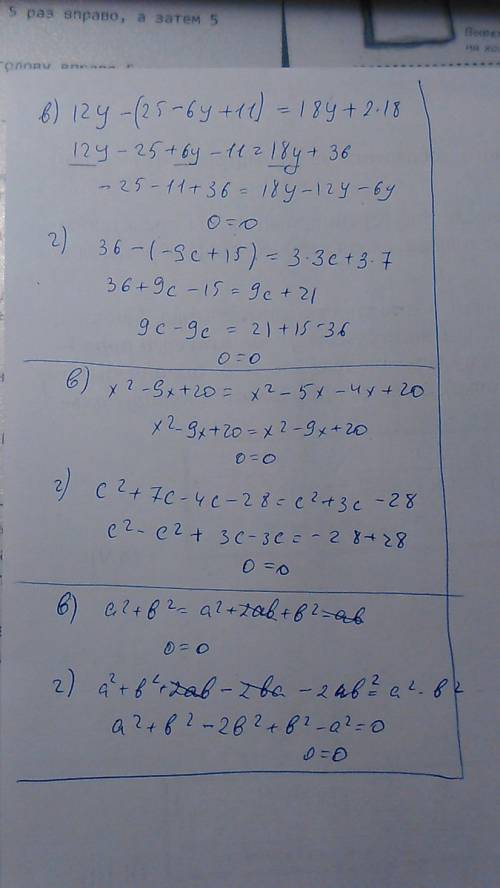 5 раз вправо, а затем 5
голову вправо
в) 12y - (25 - 6y + 11) = 18y + 2·18
12y - 25 + 6y - 11 = 18y + 36
- 25 - 11 + 36 = 18y - 12y - 6y
0 = 0
г) 36 - (-9c + 15) = 3·3c + 3·7
36 + 9c - 15 = 9c + 21
9c - 9c = 21 + 15 - 36
0 = 0
в) x² - 9x + 20 = x² - 5x - 4x + 20
x² - 9x + 20 = x² - 9x + 20
0 = 0
г) c² + 7c - 4c - 28 = c² + 3c - 28
c² - c² + 3c - 3c = - 28 + 28
0 = 0
в) a² + b² = a² + 2ab + b² - ab
0 = 0
г) a² + b² + 2ab - 2ba - 2ab² = a² - b²
a² + b² - 2b² + b² - a² = 0
0 = 0